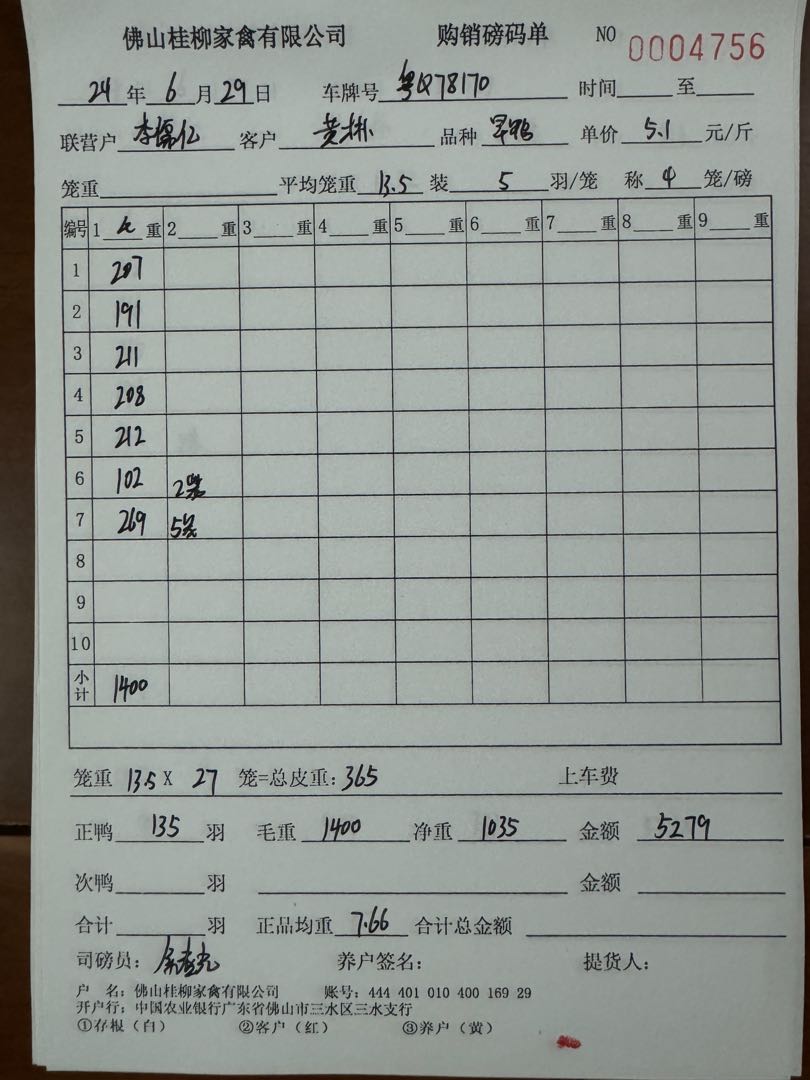 佛山桂柳家禽有限公司 购销磅码单 NO 0004756
24年6月29日 车牌号 粤Q78170 时间 至
联营户 李儒亿 客户 黄彬 品种 旱鸭 单价 5.1 元/斤
笼重 平均笼重 13.5 装 5 羽/笼 称 4 笼/磅
编号 1 重 2 重 3 重 4 重 5 重 6 重 7 重 8 重 9 重
1 207
2 191
3 211
4 208
5 212
6 102 2笼
7 269 5笼
8
9
10
小计 1400
笼重 13.5 X 27 笼=总皮重:365 上车费
正鸭 135 羽 毛重 1400 净重 1035 金额 5279
次鸭 羽 金额
合计 羽 正品均重 7.66 合计总金额
司磅员: 养户签名: 提货人:
户 名:佛山桂柳家禽有限公司 账号:444 401 010 400 169 29
开户行:中国农业银行广东省佛山市三水区三水支行
①存根(白) ②客户(红) ③养户(黄)